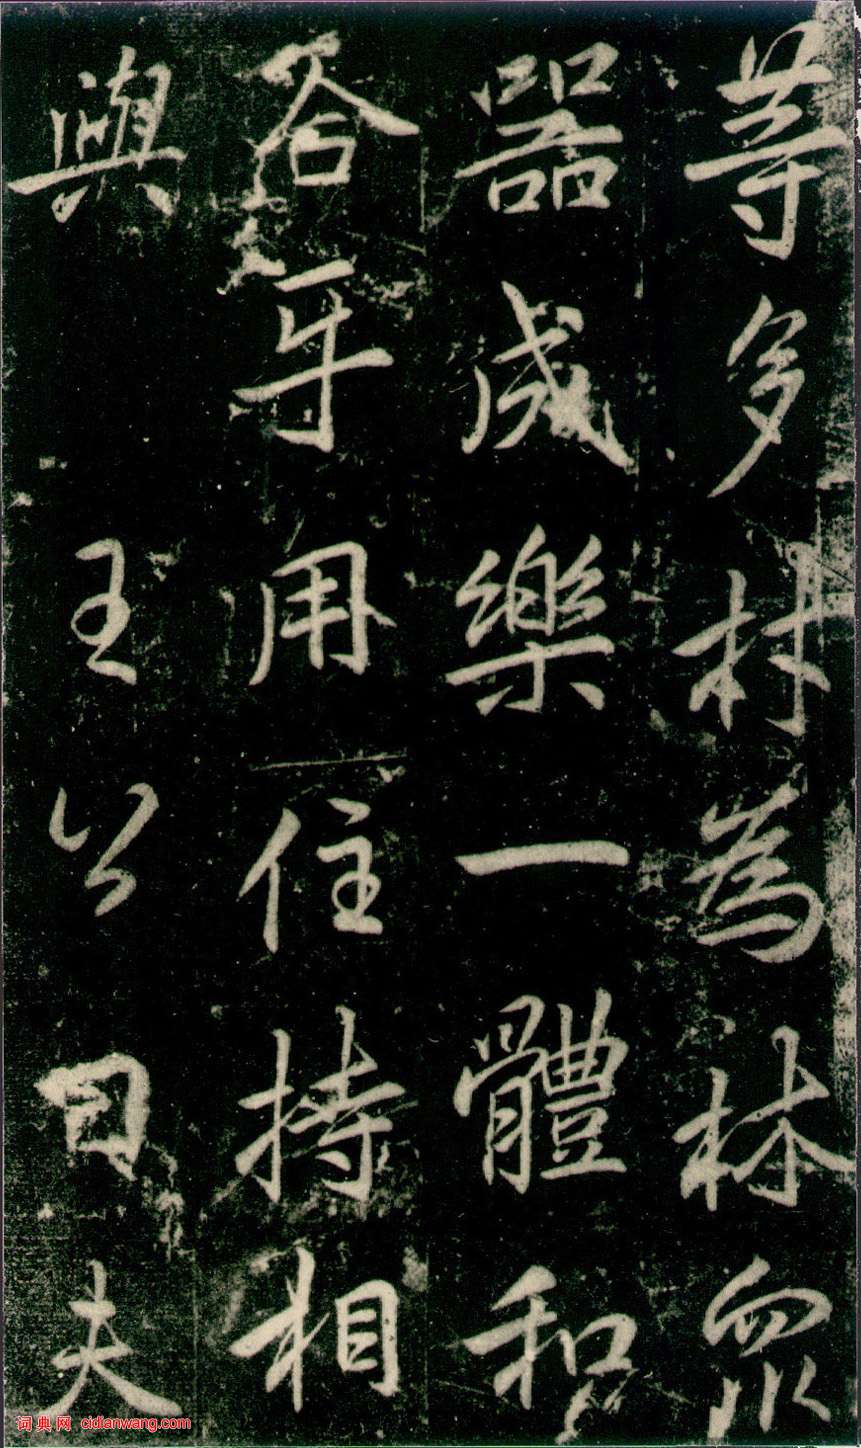 等多材為林眾
器成樂一體和
合牙用住持相
與 王公曰夫
词典网 cidianwang.com